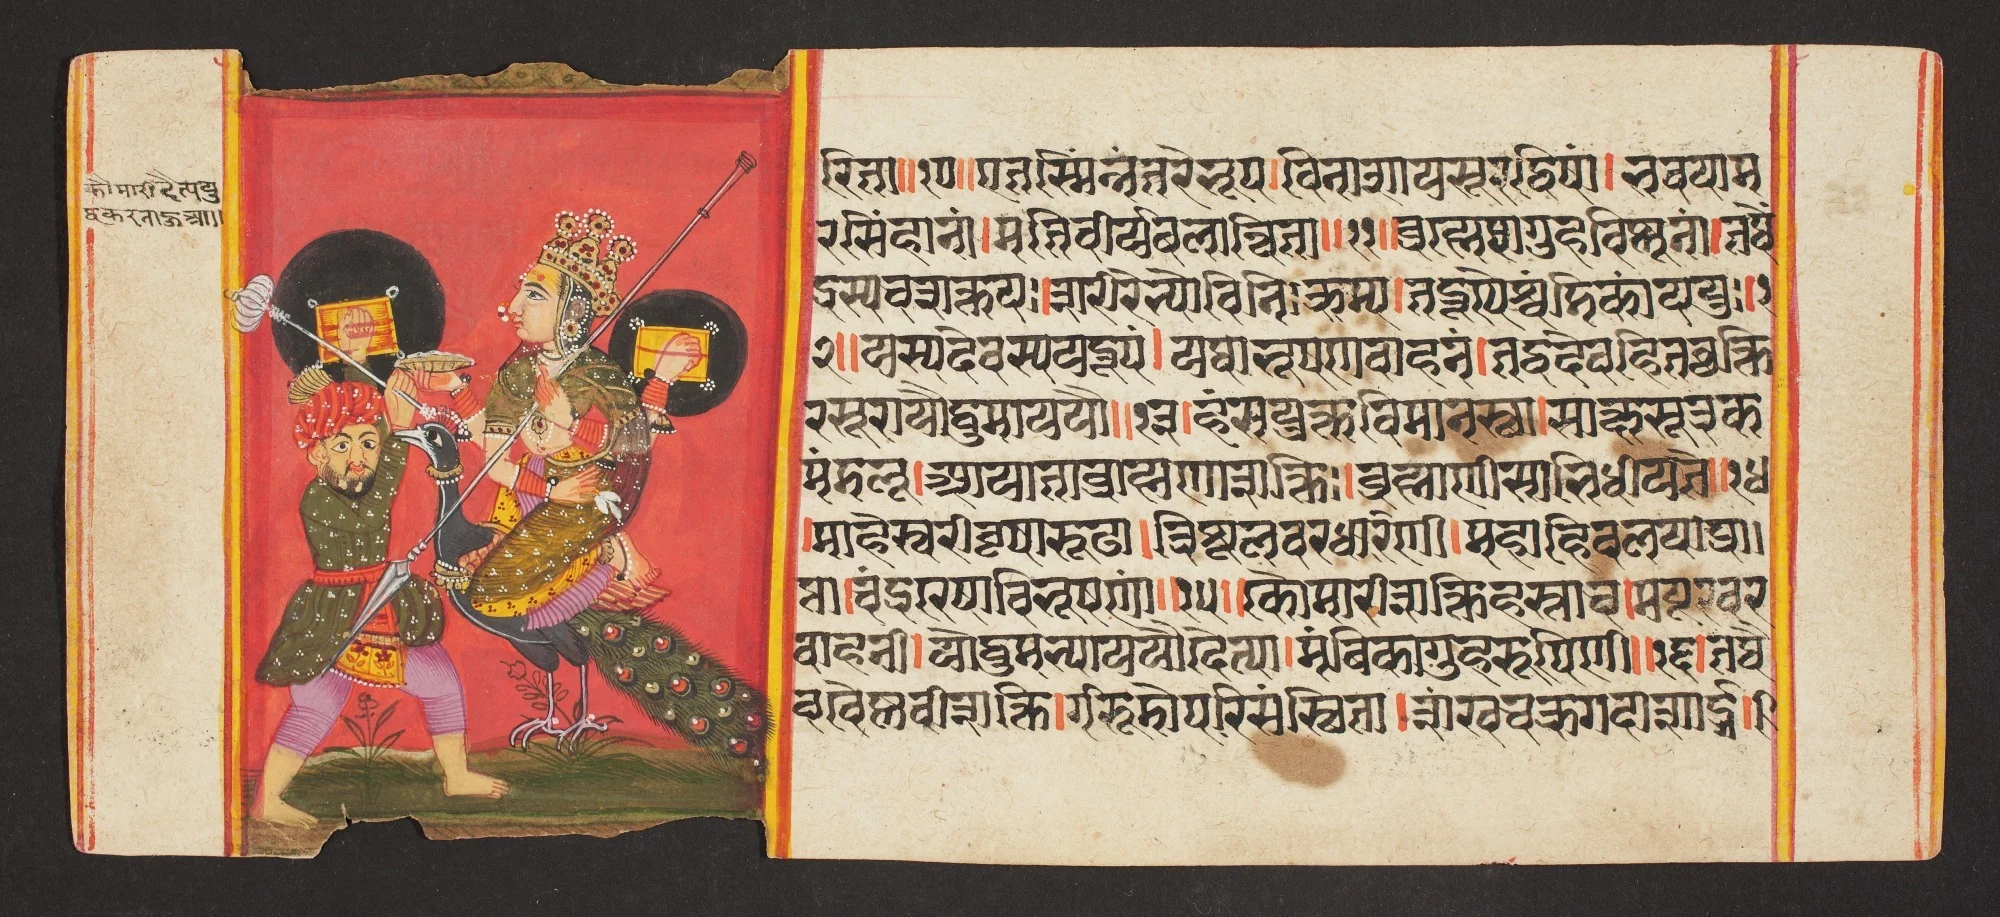 कौमारी दैत्ययु
द्धकरताऊआ।।
रिता॥१०॥एतस्मिंन्नंतरेभूप।विनाशायसूरद्विषां।भवयाम
रसिंहानां।मतिवीर्यबलान्विता॥११॥ब्रह्मेषागुहविष्णूनां।तथें
द्रस्यचशक्तयः।शरीरेभ्योविनिःक्रम्य।तद्रूपैश्चंडिकांययुः।१
२॥यस्यदेवस्ययद्रूपं।यथाभूषणवाहनं।तद्वदेवहितच्छक्ति
रसूरायौद्धुमाययौ॥१३।हंसयुक्तविमानस्था।साक्षसूत्रक
मंडलू।आयाताब्राह्मणाशक्तिः।ब्रह्माणीसाभिधीयते॥१४
।माहेस्वरीवृषारूढा।त्रिशूलवरधारिणी।महाहिवलयाप्रा।
प्ता।चंद्ररेषाविभूषणा॥१५॥कौमारीशक्तिहस्ताच।मयूरवर
वाहनी।यौद्धुमभ्याययौदैत्या।मंबिकागुहरूपिणी॥१६।तथै
ववैष्णवीशक्ति।र्गरूडोपरिसंस्थिता।शंखचक्रगदाशार्ङ्ग।।